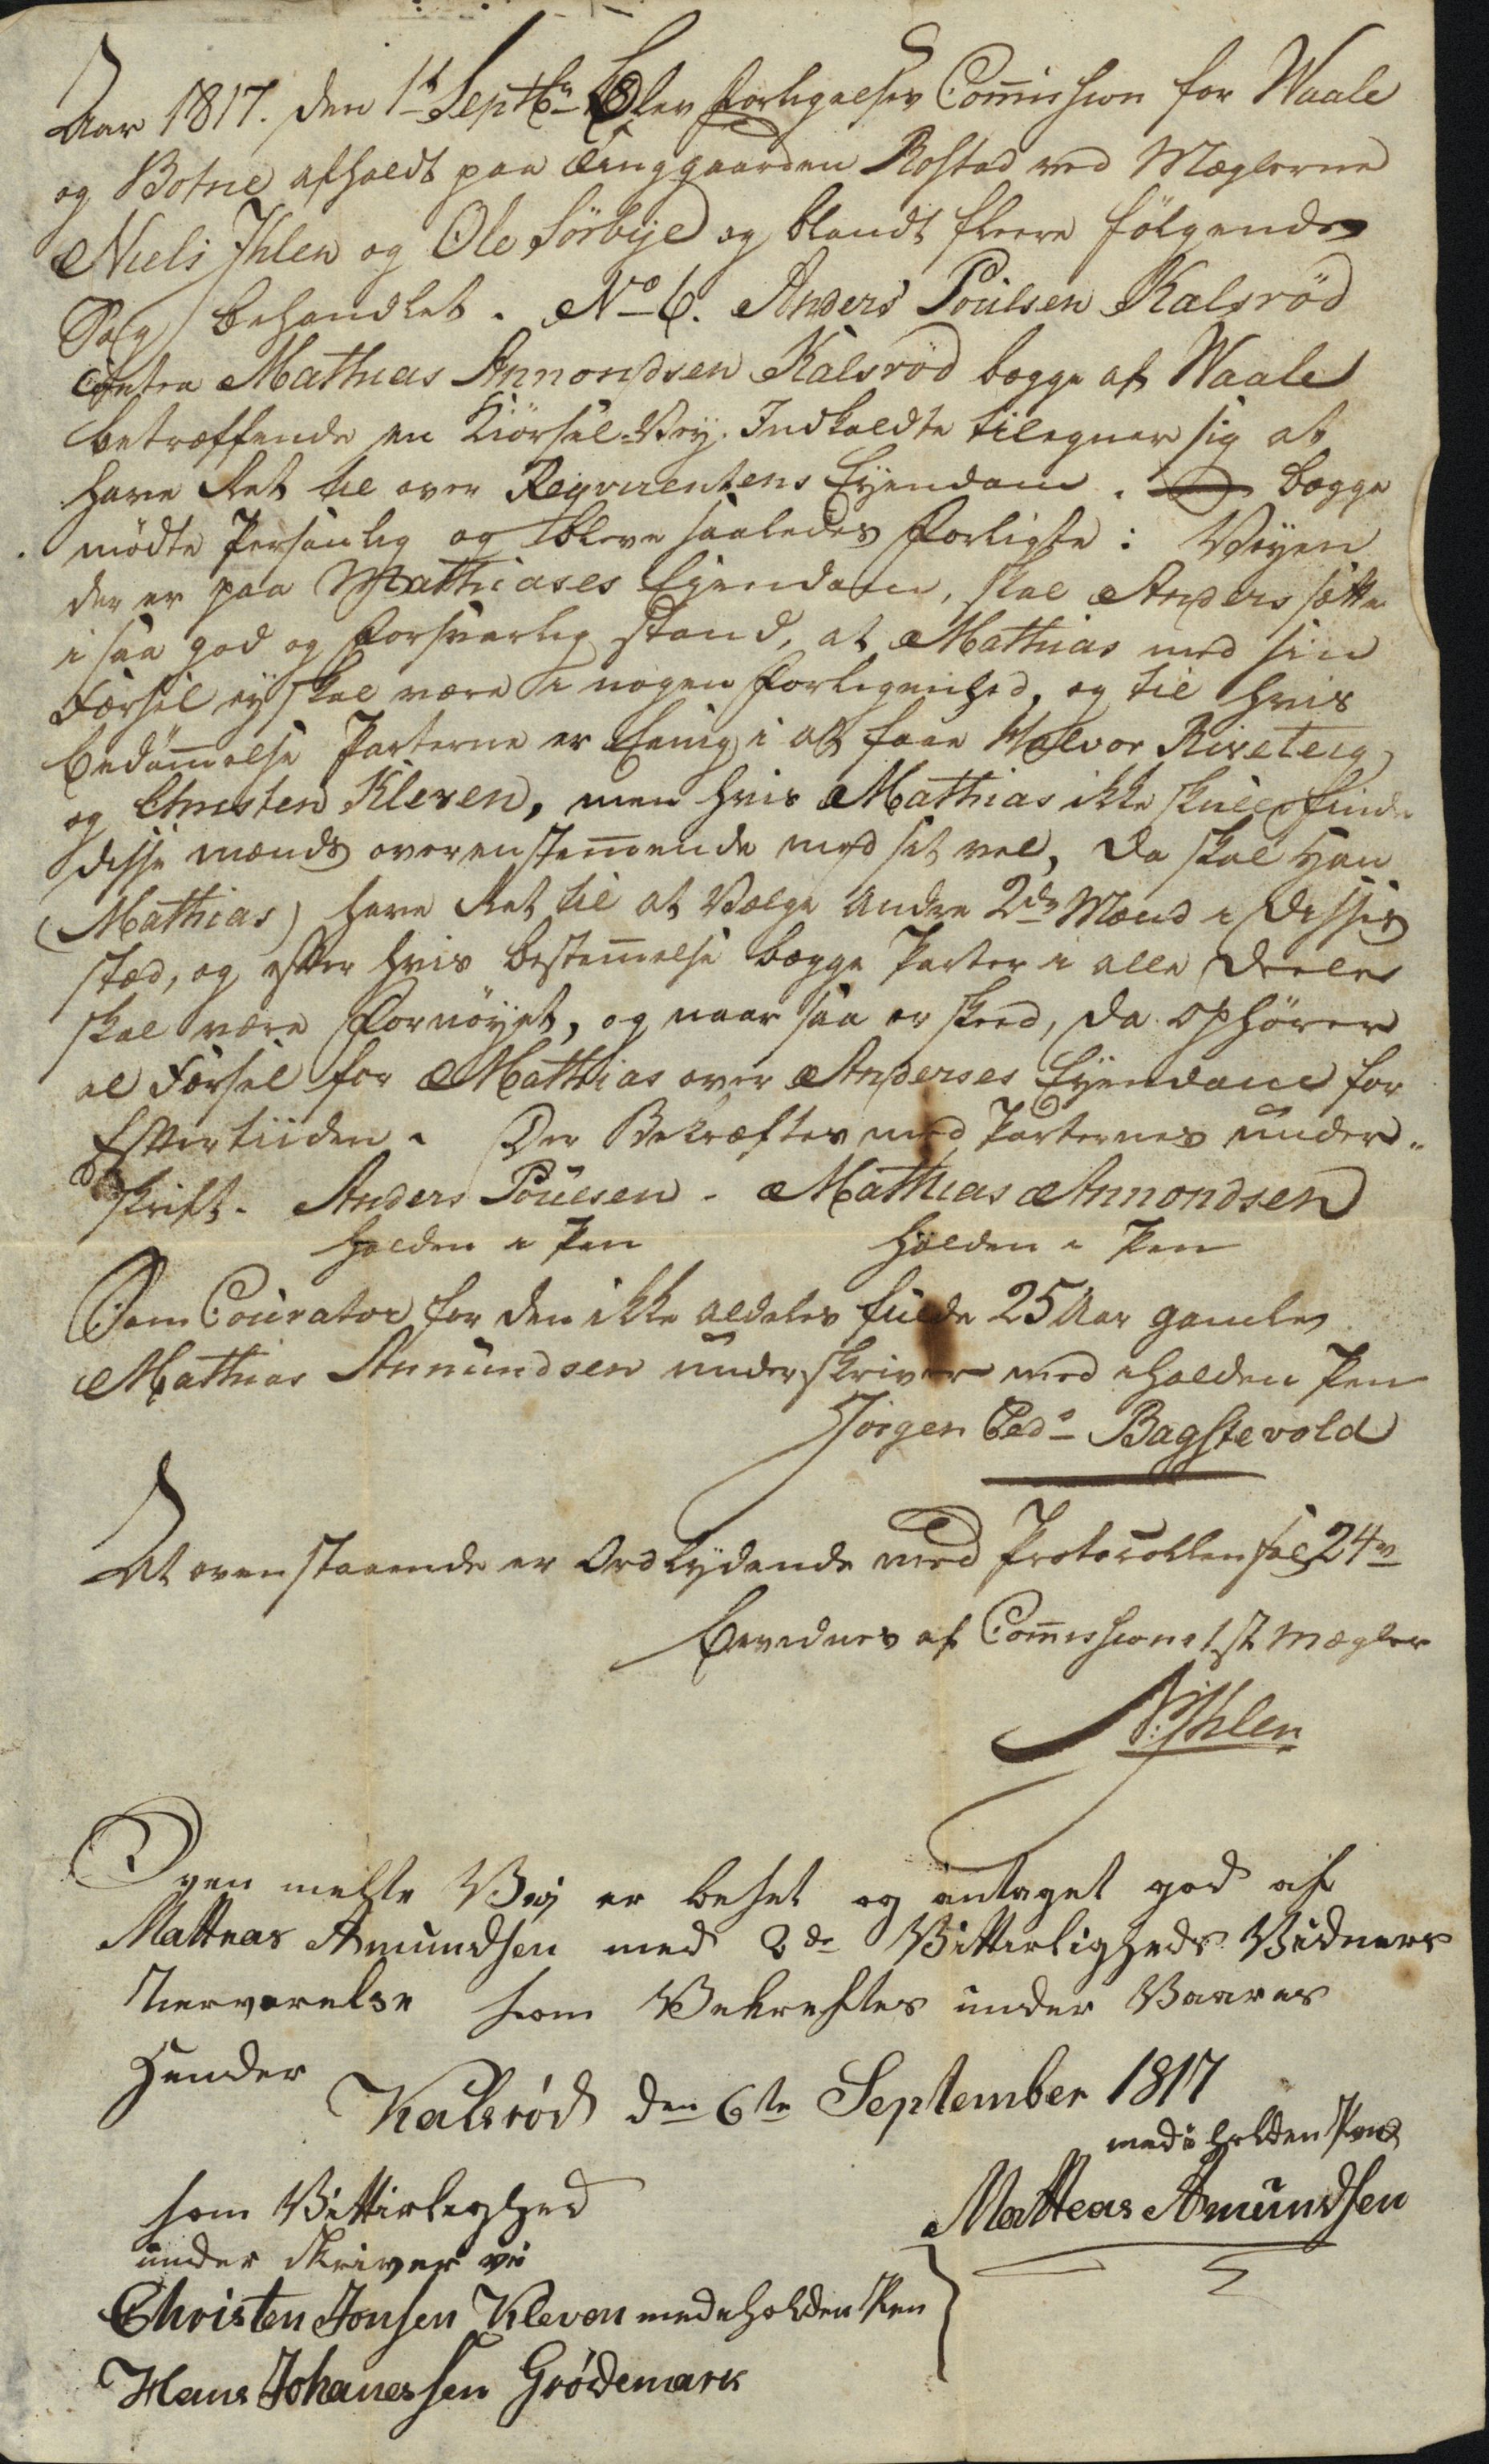 Aar 1817. den 1t Septbr Blev Forligelses Com̄ission for Waale
og Botne afholdt paa Tinggaarden Rostad ved Mæglerne
Niels Ihlen og Ole Sörbye og blandt flere følgende
Sag behandlet. No 6. Anders Poulsen Kalsröd
contra Mathias Annondsen Kalsröd begge af Waale
betræffende en Kiörsel-Vej. Indkaldte tilegner sig at
have Ret til over Reqvirentens Eyendom. begge
mödte Personlig og bleve saaledes Forligte: Veyen
der er paa Mathiases Eyendom, skal Anders sætte
i saa god og forsvarlig stand, at Mathias med sin
Førsel ey skal være i nogen forlegenhed, og til hvis
bedöm̄else Parterne er Eenig i at faae Halvor Riseteig
og Christen Kleven, men hvis Mathias ikke skulle finde
disse mænds overenstem̄ende med sit vel, da skal han
(Mathias) have Ret til at Vælge andre 2de Mænd i disses
sted, og efter hvis bestem̄else begge Parter i alle Deele
skal være Fornöyet, og naar saa er skeed, da ophörer
al Førsel for Mathias over Anderses Eyendom for
Eftertiiden. Der Bekræftes med Parternes under-
skrift. Anders Poulsen. Mathias Annondsen
holden i Pen holden i Pen
Som Courator for den ikke aldeles fulde 25 Aar gamle
Mathias Annundsen underskriver med iholden Pen
Jörgen Peds Bagstevold
At ovenstaaende er Ordlydende med Protocollen fol 24
bevidnes af Com̄issions 1ste Mægler
NIhlen
Oven melte Vej er beset og antaget god af
Matteas Amundsen med 2de Vitterligheds Vidners
Nerverelse som Bekreftes under Vaares
Hender
Kalsröd den 6te September 1817
med i holden Pen
Matteas Amundsen
som Vitterlighed
under skriver vi
Christen Jonsen Kleven med iholden Pen
Hans Johanessen Grödemark